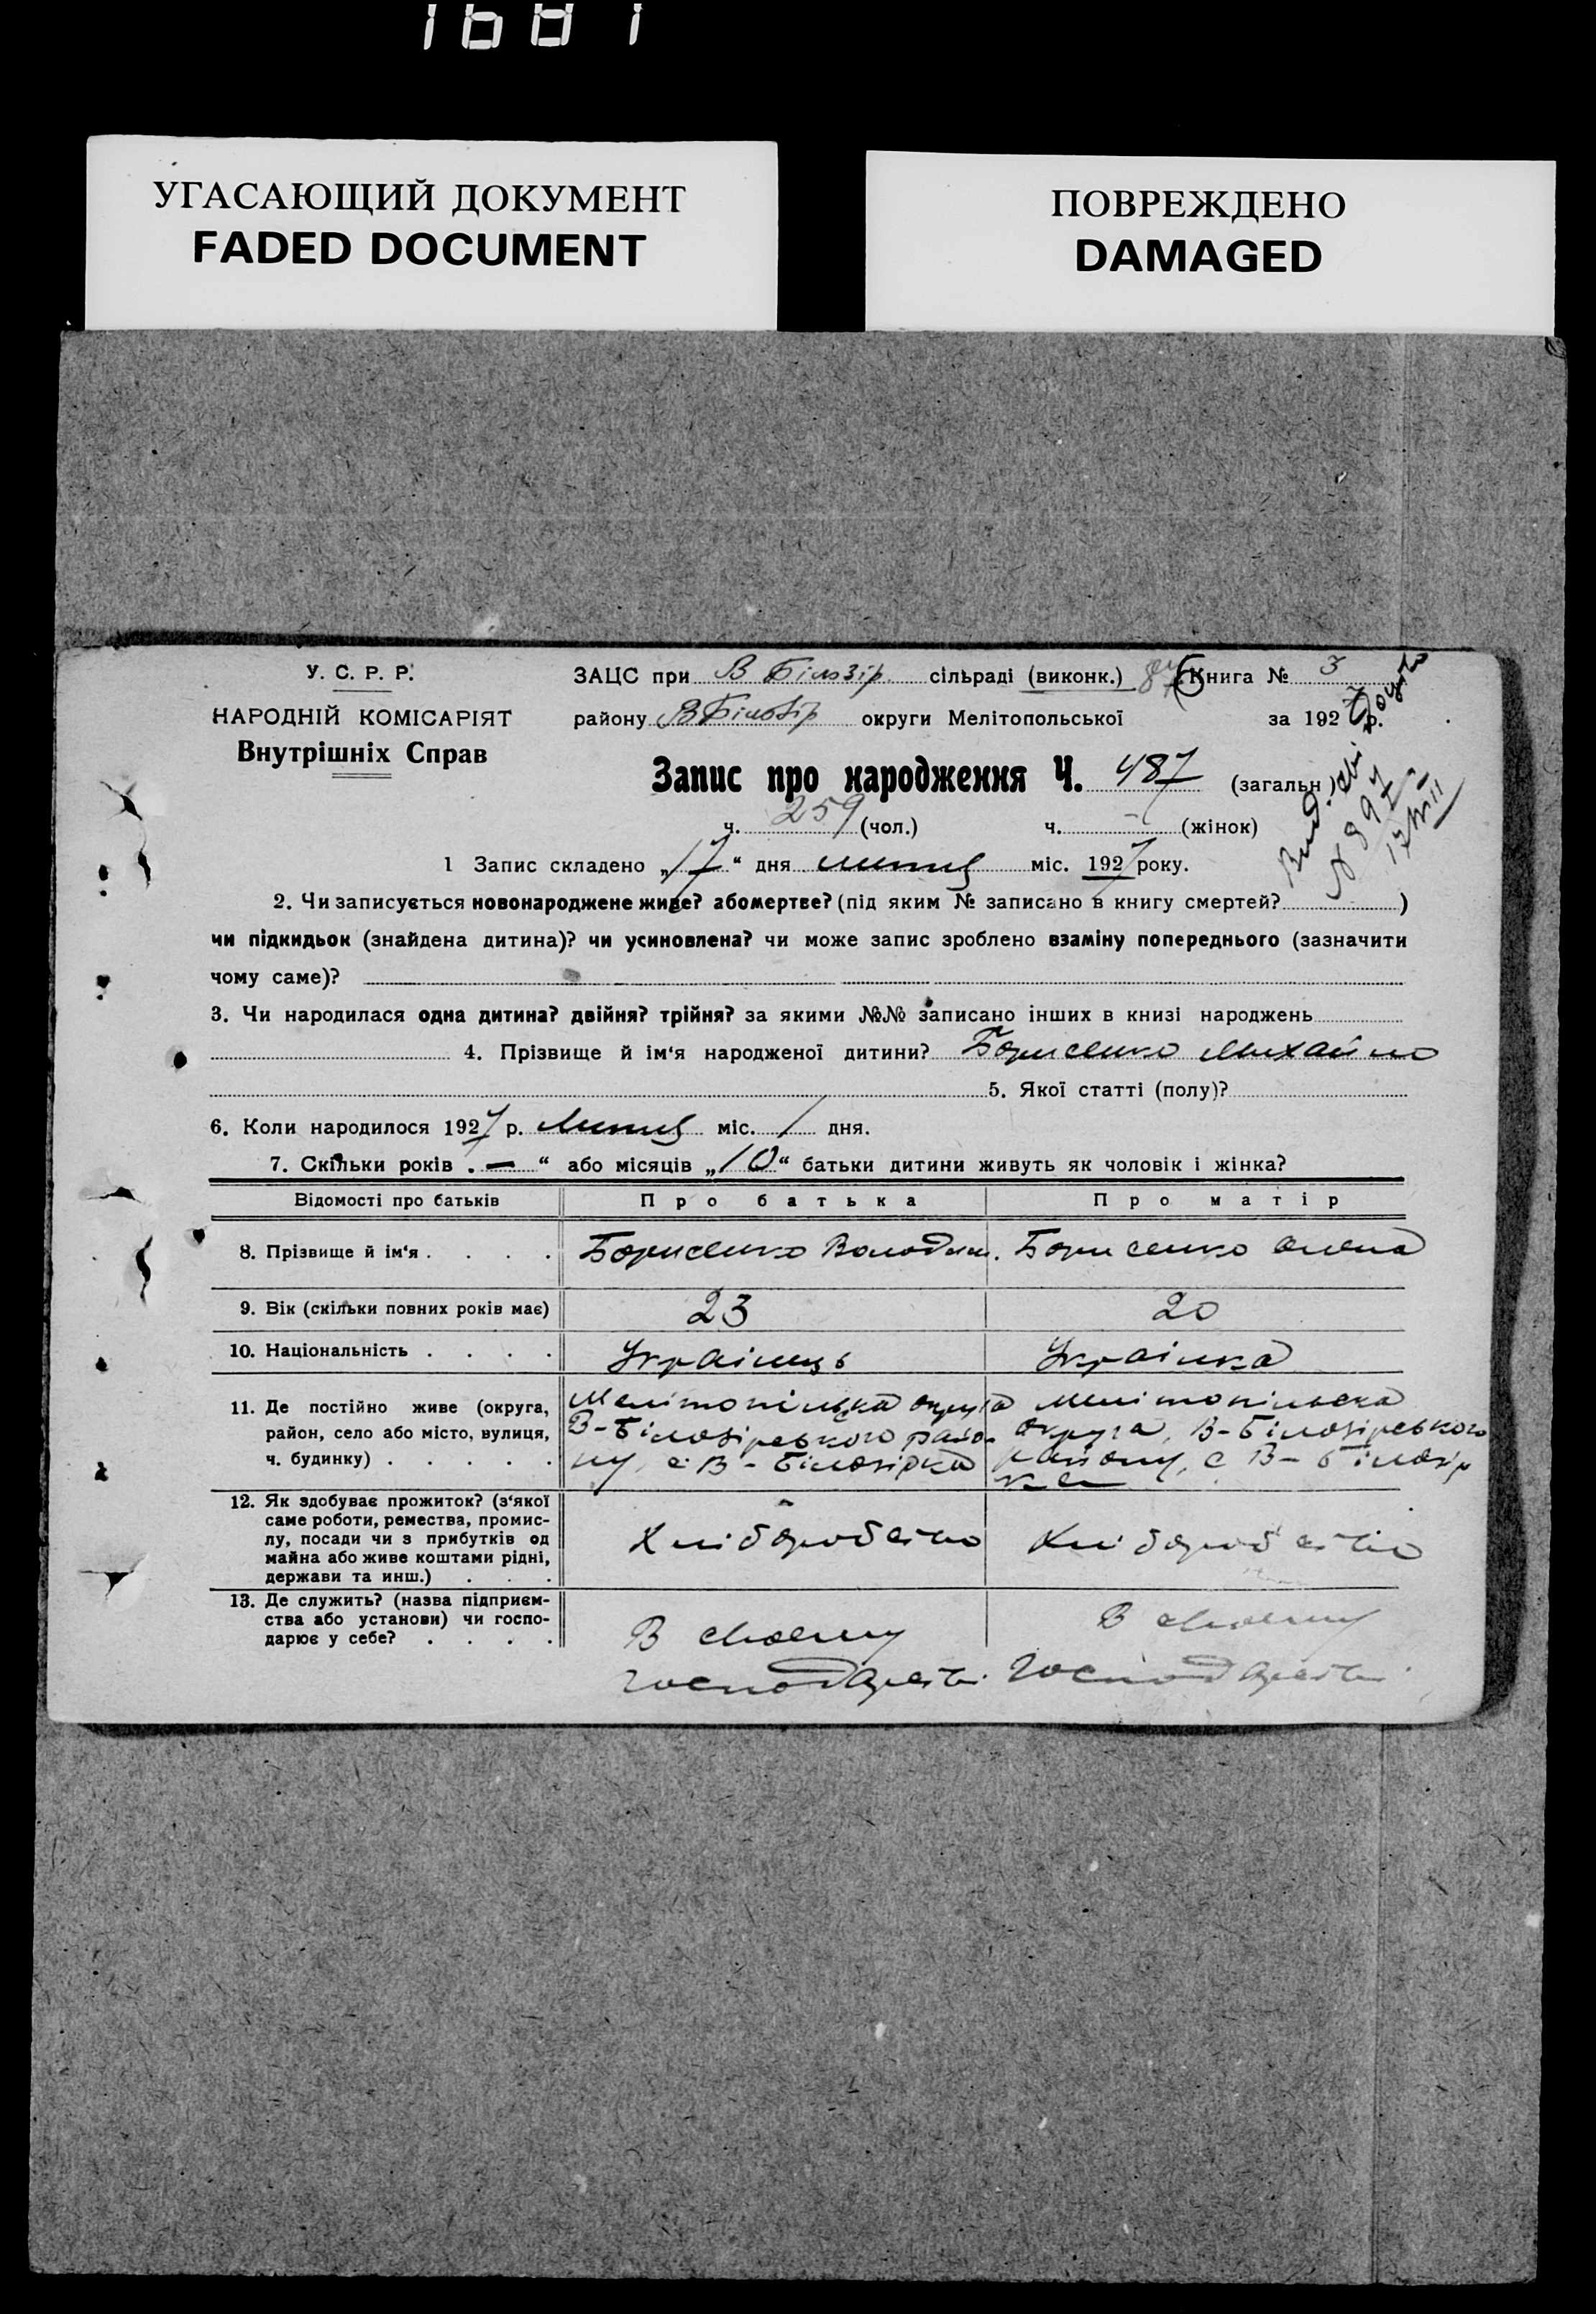 1681
УГАСАЮЩИЙ ДОКУМЕНТ
FADED DOCUMENT
ПОВРЕЖДЕНО
DAMAGED
У. С. Р. Р.
НАРОДНІЙ КОМІСАРІЯТ
Внутрішніх Справ
ЗАЦС при В Білозір. сільраді (виконк.) Книга № 3
району В Білозір округи Мелітопольської за 1927 р.
Запис про народження Ч. 487 (загальн.)
ч. 259 (чол.) ч. - (жінок)
1 Запис складено „17“ дня липня міс. 1927 року.
2. Чи записується новонароджене живе? або мертве? (під яким № записано в книгу смертей? )
чи підкидьок (знайдена дитина)? чи усиновлена? чи може запис зроблено взаміну попереднього (зазначити
чому саме)?
3. Чи народилася одна дитина? двійня? трійня? за якими №№ записано інших в книзі народжень
4. Прізвище й ім'я народженої дитини? Борисенко Михайло
5. Якої статті (полу)?
6. Коли народилося 1927 р. Липня міс. 1 дня.
7. Скільки років „—“ або місяців „10“ батьки дитини живуть як чоловік і жінка?
Відомості про батьків Про батька Про матір
8. Прізвище й ім'я . . . . Борисенко Володим. Борисенко Олена
9. Вік (скільки повних років має) 23 20
10. Національність . . . . Українець Українка
11. Де постійно живе (округа, район, село або місто, вулиця, ч. будинку) . . . . .
Мелітопільска округа
В-Білозірського райо-
ну, с. В-Білозірка
Мелітопільска
округа, В-Білозірського
району, с В-Білозір
ка
12. Як здобуває прожиток? (з'якої
саме роботи, ремества, промис-
лу, посади чи з прибутків од
майна або живе коштами рідні,
держави та инш.) . . .
Хліборобство Хліборобство
13. Де служить? (назва підприєм-
ства або установи) чи госпо-
дарює у себе? . . . .
В своєму
господарстві.
В своєму
господарстві.